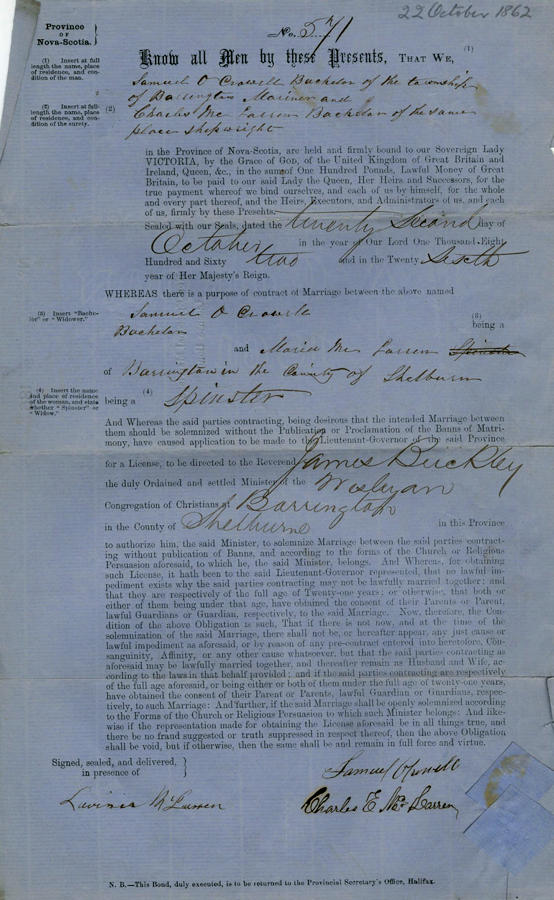 22 October 1862
Province
OF
Nova-Scotia.
No. 571
Know all Men by these Presents, THAT WE, (1)
(1) Insert at full length the name, place of residence, and condition of the man.
Samuel O Crowell Bachelor of the township
of Barrington Mariner and
(2) Insert at full length the name, place of residence, and condition of the surety.
(2) Charles Mc Larren Bachelor of the same
place shipwright
in the Province of Nova-Scotia, are held and firmly bound to our Sovereign Lady
VICTORIA, by the Grace of GOD, of the United Kingdom of Great Britain and
Ireland, Queen, &c., in the sum of One Hundred Pounds, Lawful Money of Great
Britain, to be paid to our said Lady the Queen, Her Heirs and Successors, for the
true payment whereof we bind ourselves, and each of us by himself, for the whole
and every part thereof, and the Heirs, Executors, and Administrators of us, and each
of us, firmly by these Presents.
Sealed with our Seals, dated the twenty Second day of
October in the year of Our Lord One Thousand Eight
Hundred and Sixty two and in the Twenty Sixth
year of Her Majesty's Reign.
WHEREAS there is a purpose of contract of Marriage between the above named
(3) Insert "Bachelor" or "Widower."
Samuel O Crowell (3)
Bachelor being a
and Maria Mc Larren Spinster
of Barrington in the County of Shelburn
(4) Insert the name and place of residence of the woman, and state whether "Spinster" or "Widow."
being a (4) Spinster
And Whereas the said parties contracting, being desirous that the intended Marriage between
them should be solemnized without the Publication or Proclamation of the Banns of Matri-
mony, have caused application to be made to the Lieutenant-Governor of the said Province
for a License, to be directed to the Reverend James Buckley
the duly Ordained and settled Minister of the Wesleyan
Congregation of Christians at Barrington
in the County of Shelburne in this Province
to authorize him, the said Minister, to solemnize Marriage between the said parties contract-
ing without publication of Banns, and according to the forms of the Church or Religious
Persuasion aforesaid, to which he, the said Minister, belongs. And Whereas, for obtaining
such License, it hath been to the said Lieutenant-Governor represented, that no lawful im-
pediment exists why the said parties contracting may not be lawfully married together: and
that they are respectively of the full age of Twenty-one years; or otherwise, that both or
either of them being under that age, have obtained the consent of their Parents or Parent,
lawful Guardians or Guardian, respectively, to the said Marriage. Now, therefore, the Con-
dition of the above Obligation is such, That if there is not now, and at the time of the
solemnization of the said Marriage, there shall not be, or hereafter appear, any just cause or
lawful impediment as aforesaid, or by reason of any pre-contract entered into heretofore, Con-
sanguinity, Affinity, or any other cause whatsoever, but that the said parties contracting as
aforesaid may be lawfully married together, and thereafter remain as Husband and Wife, ac-
cording to the laws in that behalf provided; and if the said parties contracting are respectively
of the full age aforesaid, or being either or both of them under the full age of twenty-one years,
have obtained the consent of their Parent or Parents, lawful Guardian or Guardians, respec-
tively, to such Marriage: And further, if the said Marriage shall be openly solemnized according
to the Forms of the Church or Religious Persuasion to which such Minister belongs: And like-
wise if the representation made for obtaining the License aforesaid be in all things true, and
there be no fraud suggested or truth suppressed in respect thereof, then the above Obligation
shall be void, but if otherwise, then the same shall be and remain in full force and virtue.
Signed, sealed, and delivered,
in presence of
Samuel O Crowell
Lavinia McLarren
Charles E Mc Larren
N. B.—This Bond, duly executed, is to be returned to the Provincial Secretary's Office, Halifax.